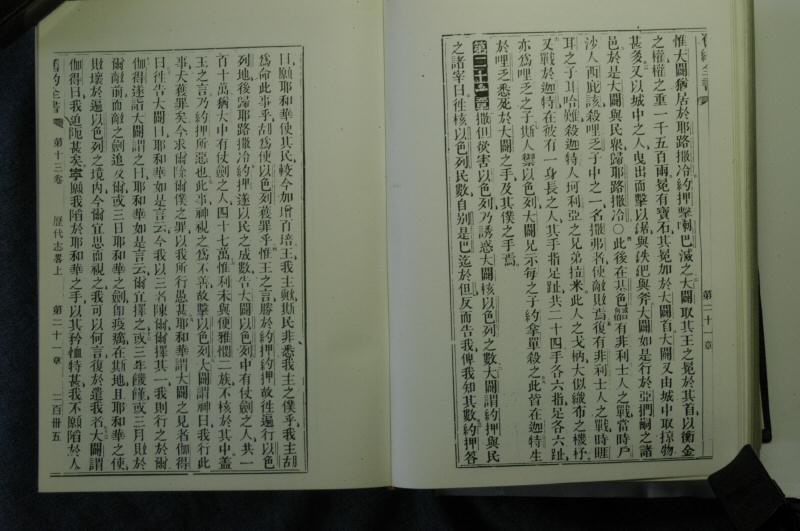 舊約全書
第二十一章
惟大闢猶居於耶路撒冷約押擊喇巴滅之大闢取其王之冕於其首以衡金
之權權之重一千五百兩冕有寶石其冕加於大闢首大闢又由城中取掠物
甚多又以城中之人曳出而擊以鋸與鉄耙與斧大闢如是行於亞捫嗣之諸
邑於是大闢與民衆歸耶路撒冷○此後在基色有非利士人之戰當時戶
沙人西庇該殺哩乏子中之一名撒弗者使敵敗焉復有非利士人之戰時睚
耳之子耳哈難殺迦特人坷利亞之兄弟拉米此人之戈柄大似織布之機杼
又戰於迦特在彼有一身長之人其手指足趾共二十四手各六指足各六趾
亦爲哩乏之子斯人禦以色列大闢兄示每之子約拿單殺之此皆在迦特生
於哩乏悉死於大闢之手及其僕之手焉
第二十一章撒但欲害以色列乃誘惑大闢核以色列之數大闢謂約押與民
之諸宰曰徃核以色列民數自别是巴迄於但反而告我俾我知其數約押答
曰願耶和華使其民較今如增百培王我主歟斯民非悉我主之僕乎我主胡
爲命此事乎胡爲使以色列獲罪乎惟王之言勝於約押約押故徃遍行以色
列地後歸耶路撒冷約押遂以民之成數告大闢以色列中有仗劍之人共一
百十萬猶大中有仗劍之人四十七萬惟利未與便雅憫二族不核於其中蓋
王之言乃約押所惡也此事神視之爲不善故擊以色列大闢謂神曰我行此
事大獲罪矣今求爾除爾僕之罪以我所行愚甚耶和華謂大闢之見者伽得
曰徃告大闢曰耶和華如是言云今我以三者陳爾爾擇其一我則行之於爾
伽得遂詣大闢謂之曰耶和華如是言云爾宜擇之或三年饑饉或三月敗於
爾敵前而敵之劍追及爾或三日耶和華之劍卽疫癘在斯地且耶和華之使
敗壞於遍以色列之境內今爾宜思而視之我可以何言復於遣我者大闢謂
伽得曰我迫阨甚矣寧願我陷於耶和華之手以其矜恤特甚我不願陷於人
舊約全書
第十三卷
歷代志畧上
第二十一章
二百卅五